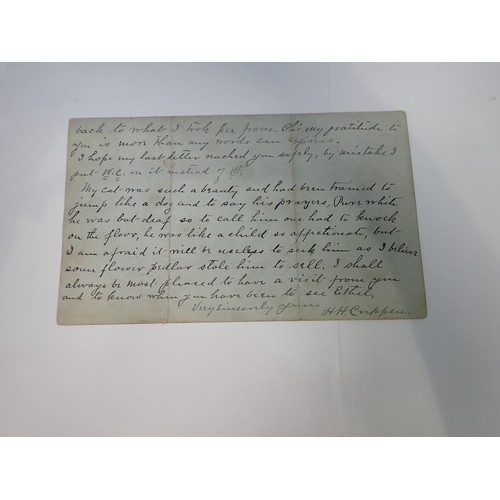 back to what I took her from. Oh! my gratitude to
you is more than any words can express.
I hope my last letter reached you safely, by mistake I
put W.C. on it instead of W.
My cat was such a beauty and had been trained to
jump like a dog and to say his prayers. Pure white
he was but deaf so to call him one had to knock
on the floor, he was like a child so affectionate, but
I am afraid it will be useless to seek him as I believe
some flower pedlar stole him to sell. I shall
always be most pleased to have a visit from you
and to know when you have been to see Ethel.
Very sincerely yours
H H Crippen.